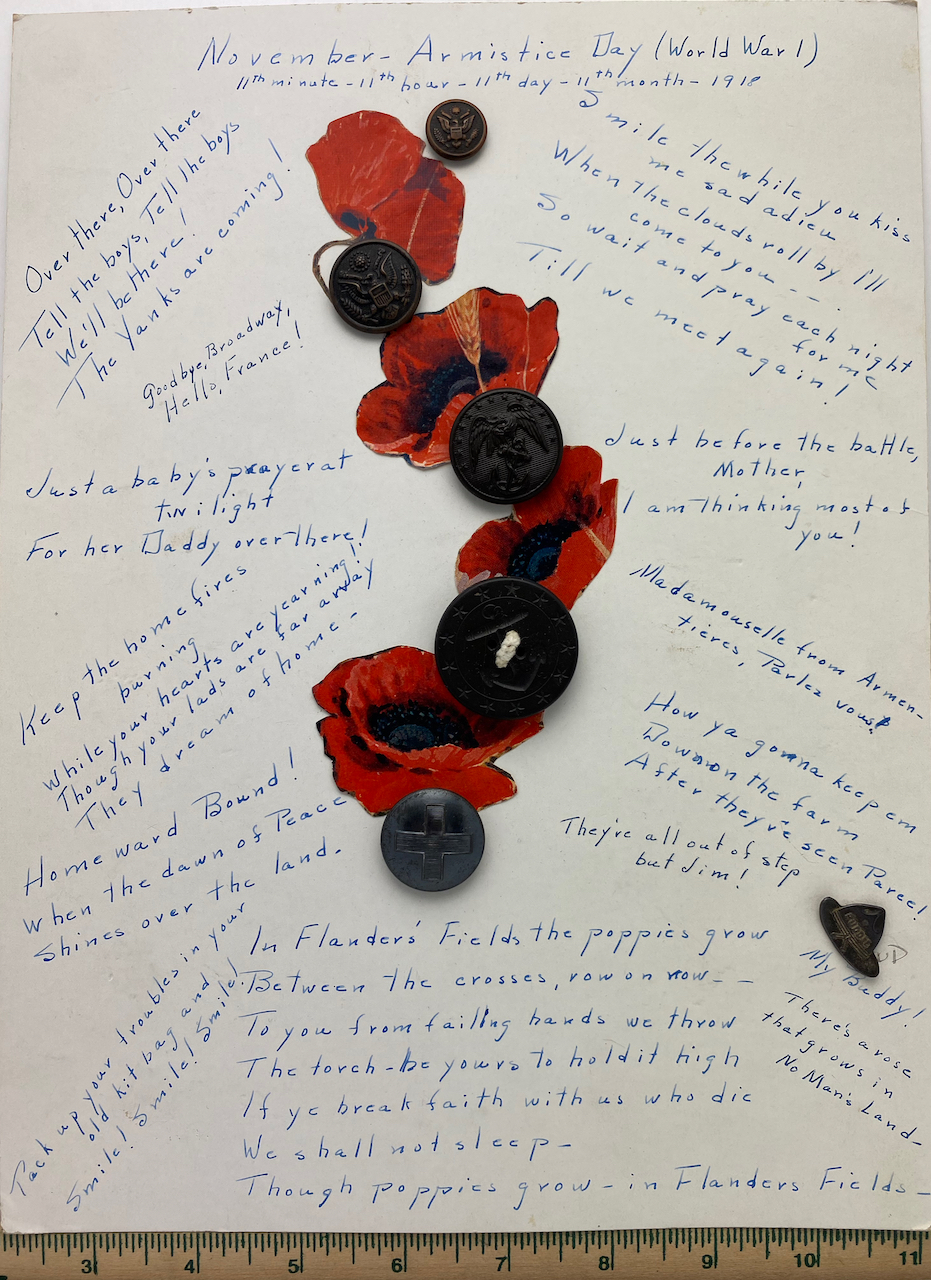 November - Armistice Day (World War 1)
11th minute - 11th hour - 11th day - 11th month - 1918
Over there, Over there
Tell the boys, Tell the boys
We'll be there!
The Yanks are coming!
Goodbye, Broadway,
Hello, France!
Just a baby's prayer at
twilight
For her Daddy over there!
Keep the home fires
burning
While your hearts are yearning!
Though your lads are far away
They dream of home -
Homeward Bound!
When the dawn of Peace
Shines over the land.
Pack up your troubles in your
old kit bag and
Smile! Smile! Smile!
Smile the while you kiss
me sad adieu
When the clouds roll by I'll
come to you - -
So wait and pray each night
for me
Till we meet again!
Just before the battle,
Mother,
I am thinking most of
you!
Madamouselle from Armen-
tieres, Parlez vous?
How ya gonna keep em
Down on the farm
After they've seen Paree!
They're all out of step
but Jim!
My Buddy!
There's a rose
that grows in
No Man's Land -
In Flanders' Fields the poppies grow
Between the crosses, row on row - -
To you from failing hands we throw
The torch - be yours to hold it high
If ye break faith with us who die
We shall not sleep -
Though poppies grow - in Flanders Fields -
3 4 5 6 7 8 9 10 11